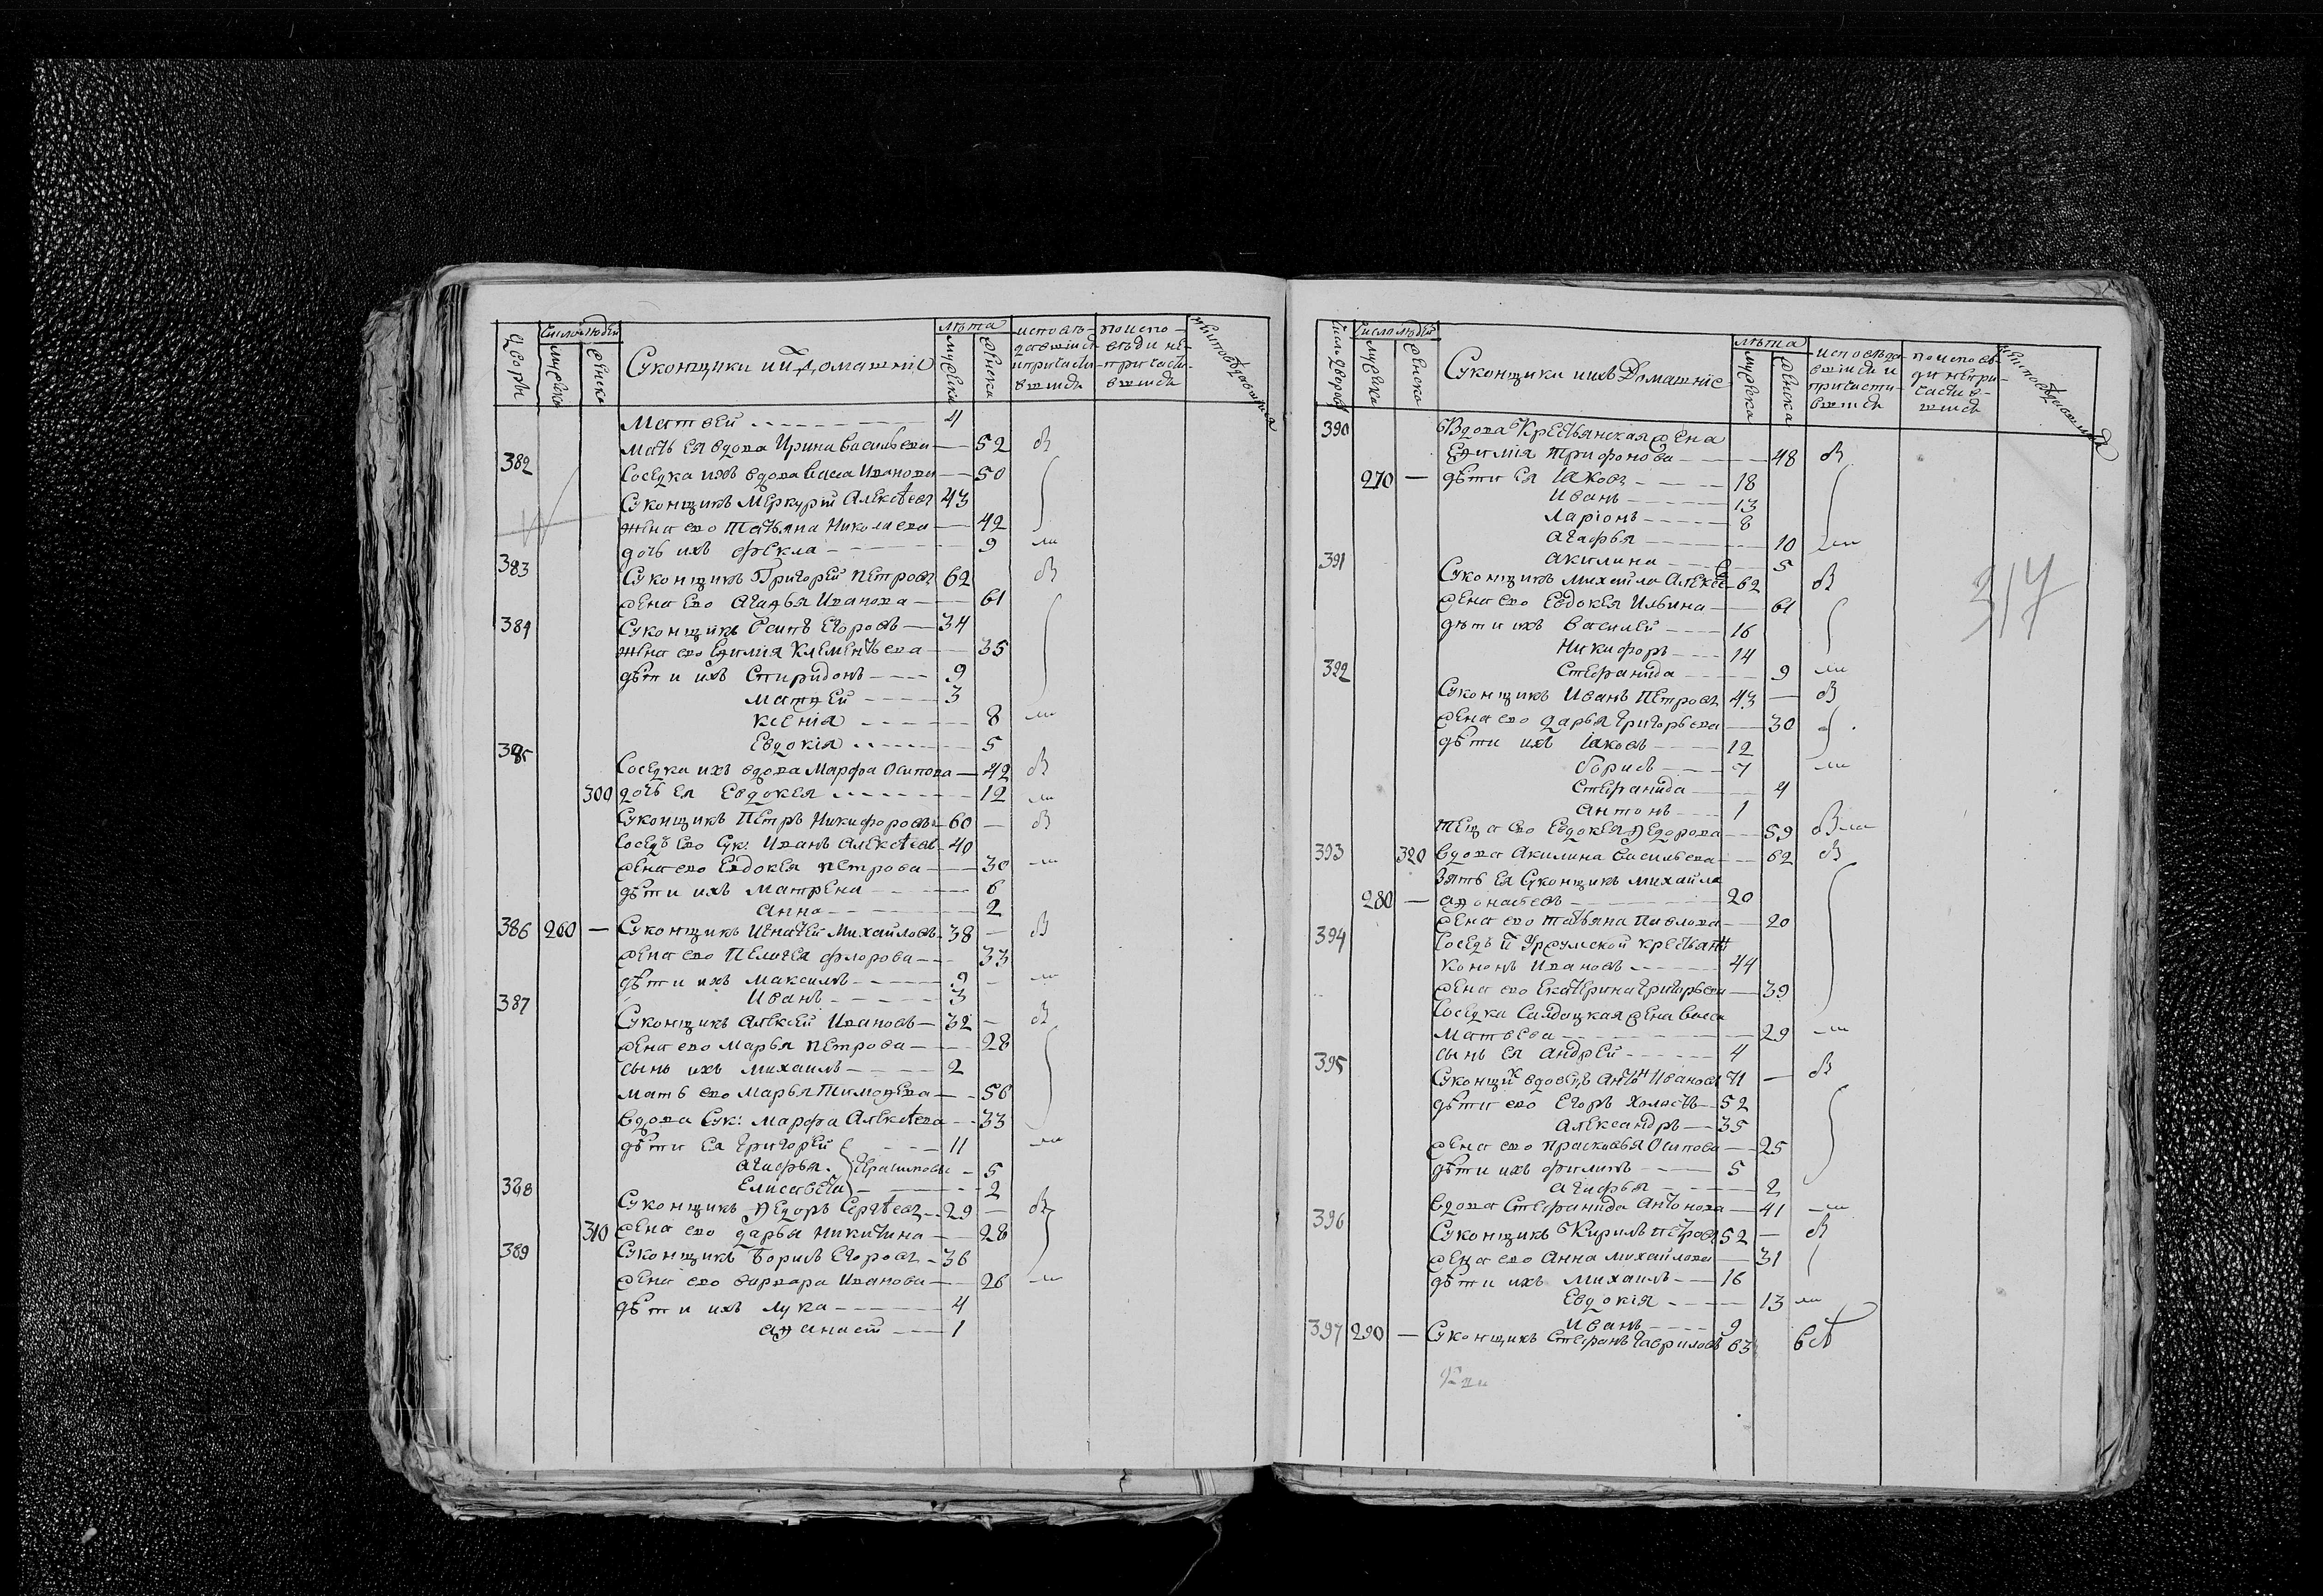 Дворы
Число людей
мужеска
женска
Суконщики и их домашніе
лѣта
мужеска
женска
исповѣ-
давшіися
и причасти-
вшіися
по испо-
вѣди не
причасти-
вшіися
неисповѣдавшіися
Матвей 4
мать ея вдова Ирина Васильева 52 В
382 Соседка ихъ вдова Васса Иванова 50
Суконщикъ Меркурій Алексѣевъ 43
жена его Татьяна Николаева 42
дочь ихъ Фекла 9 ми
383 Суконщикъ Григорей Петровъ 62 В
жена его Агафья Иванова 61
384 Суконщикъ Осипъ Егоровъ 34
жена его Еѳимія Клементьева 35
дѣти ихъ Спиридонъ 9
Матѳей 3
Ксенія 8 ми
Евдокія 5
385 Соседка ихъ вдова Марфа Осипова 42 В
300 дочь ея Евдокея 12 ми
Суконщикъ Петръ Никифоровъ 60 — В
Соседъ его Сук: Иванъ Алексѣевъ 40
жена его Евдокея Петрова 30 ми
дѣти ихъ Матрена 6
Анна 2
386 260 — Суконщикъ Игнатей Михайловъ 38 — В
жена его Пелагея Флорова 33
дѣти ихъ Максимъ 9 ми
Иванъ 3
387 Суконщикъ Алексей Ивановъ 32 — В
жена его Марья Петрова 28
сынъ ихъ Михаилъ 2
мать его Марья Тимоѳеева 56
вдова Сук: Марфа Алексѣева 33
дѣти ея Григорей 11 ми
Агафья Герасимовы 5
Елисавета 2
388 Суконщикъ Ѳедоръ Сергѣевъ 29 — В
310 жена его Дарья Никитина 28
389 Суконщикъ Борисъ Егоровъ 36
жена его Варвара Иванова 26 ми
дѣти ихъ Лука 4
Аѳанасей 1
Число дворовъ
Число людей
мужеска
женска
Суконщики и ихъ Домашніе
лѣта
мужеска
женска
исповѣда
вшіися и
причасти-
вшіися
по исповѣ-
ди непри-
частив-
шіися
неисповѣдавшіися
390 Вдова Крестьянская жена
Еѳимія Трифонова 48 В
270 — дѣти ея Іаковъ 18
Иванъ 13
Ларіонъ 8
Агафья 10 ми
Акилина 5
391 Суконщикъ Михайла Алексе 62 В
жена его Евдокея Ильина 61
дѣти ихъ Василей 16
Никифоръ 14
Стефанида 9 ми
392 Суконщикъ Иванъ Петровъ 43 — В
жена его Дарья Григорьева 30
дѣти ихъ Іаковъ 12
Борисъ 7 ми
Стефанида 4
Антонъ 1
теща его Евдокея Ѳедорова 59 В ми
317
393 320 вдова Акилина Васильева 62 В
Зять ея Суконщикъ Михайла
280 — Аѳонасьевъ 20
жена его Татьяна Павлова 20
394 Соседъ Уржумской крестьяни
Кононъ Ивановъ 44
жена его Екатерина Григорьева 39
Соседка Салдацкая жена Васса
Матвѣева 29 ми
сынъ ея Андрей 4
395 Суконщикъ вдовецъ Антонъ Ивановъ 71 — В
дѣти его Егоръ холостъ 52
Александръ 35
жена его Прасковья Осипова 25
дѣти ихъ Филипъ 5
Агафья 2
вдова Стефанида Антонова 41 ми
396 Суконщикъ Кирилъ Петровъ 52 — В
жена его Анна Михайлова 31
дѣти ихъ Михаилъ 16
Евдокія 13 ми
Иванъ 9
397 290 — Суконщикъ Стефанъ Гавриловъ 63